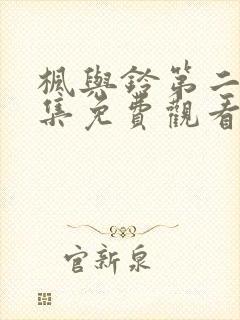 楓與鈴第二
集免費觀看
官新泉